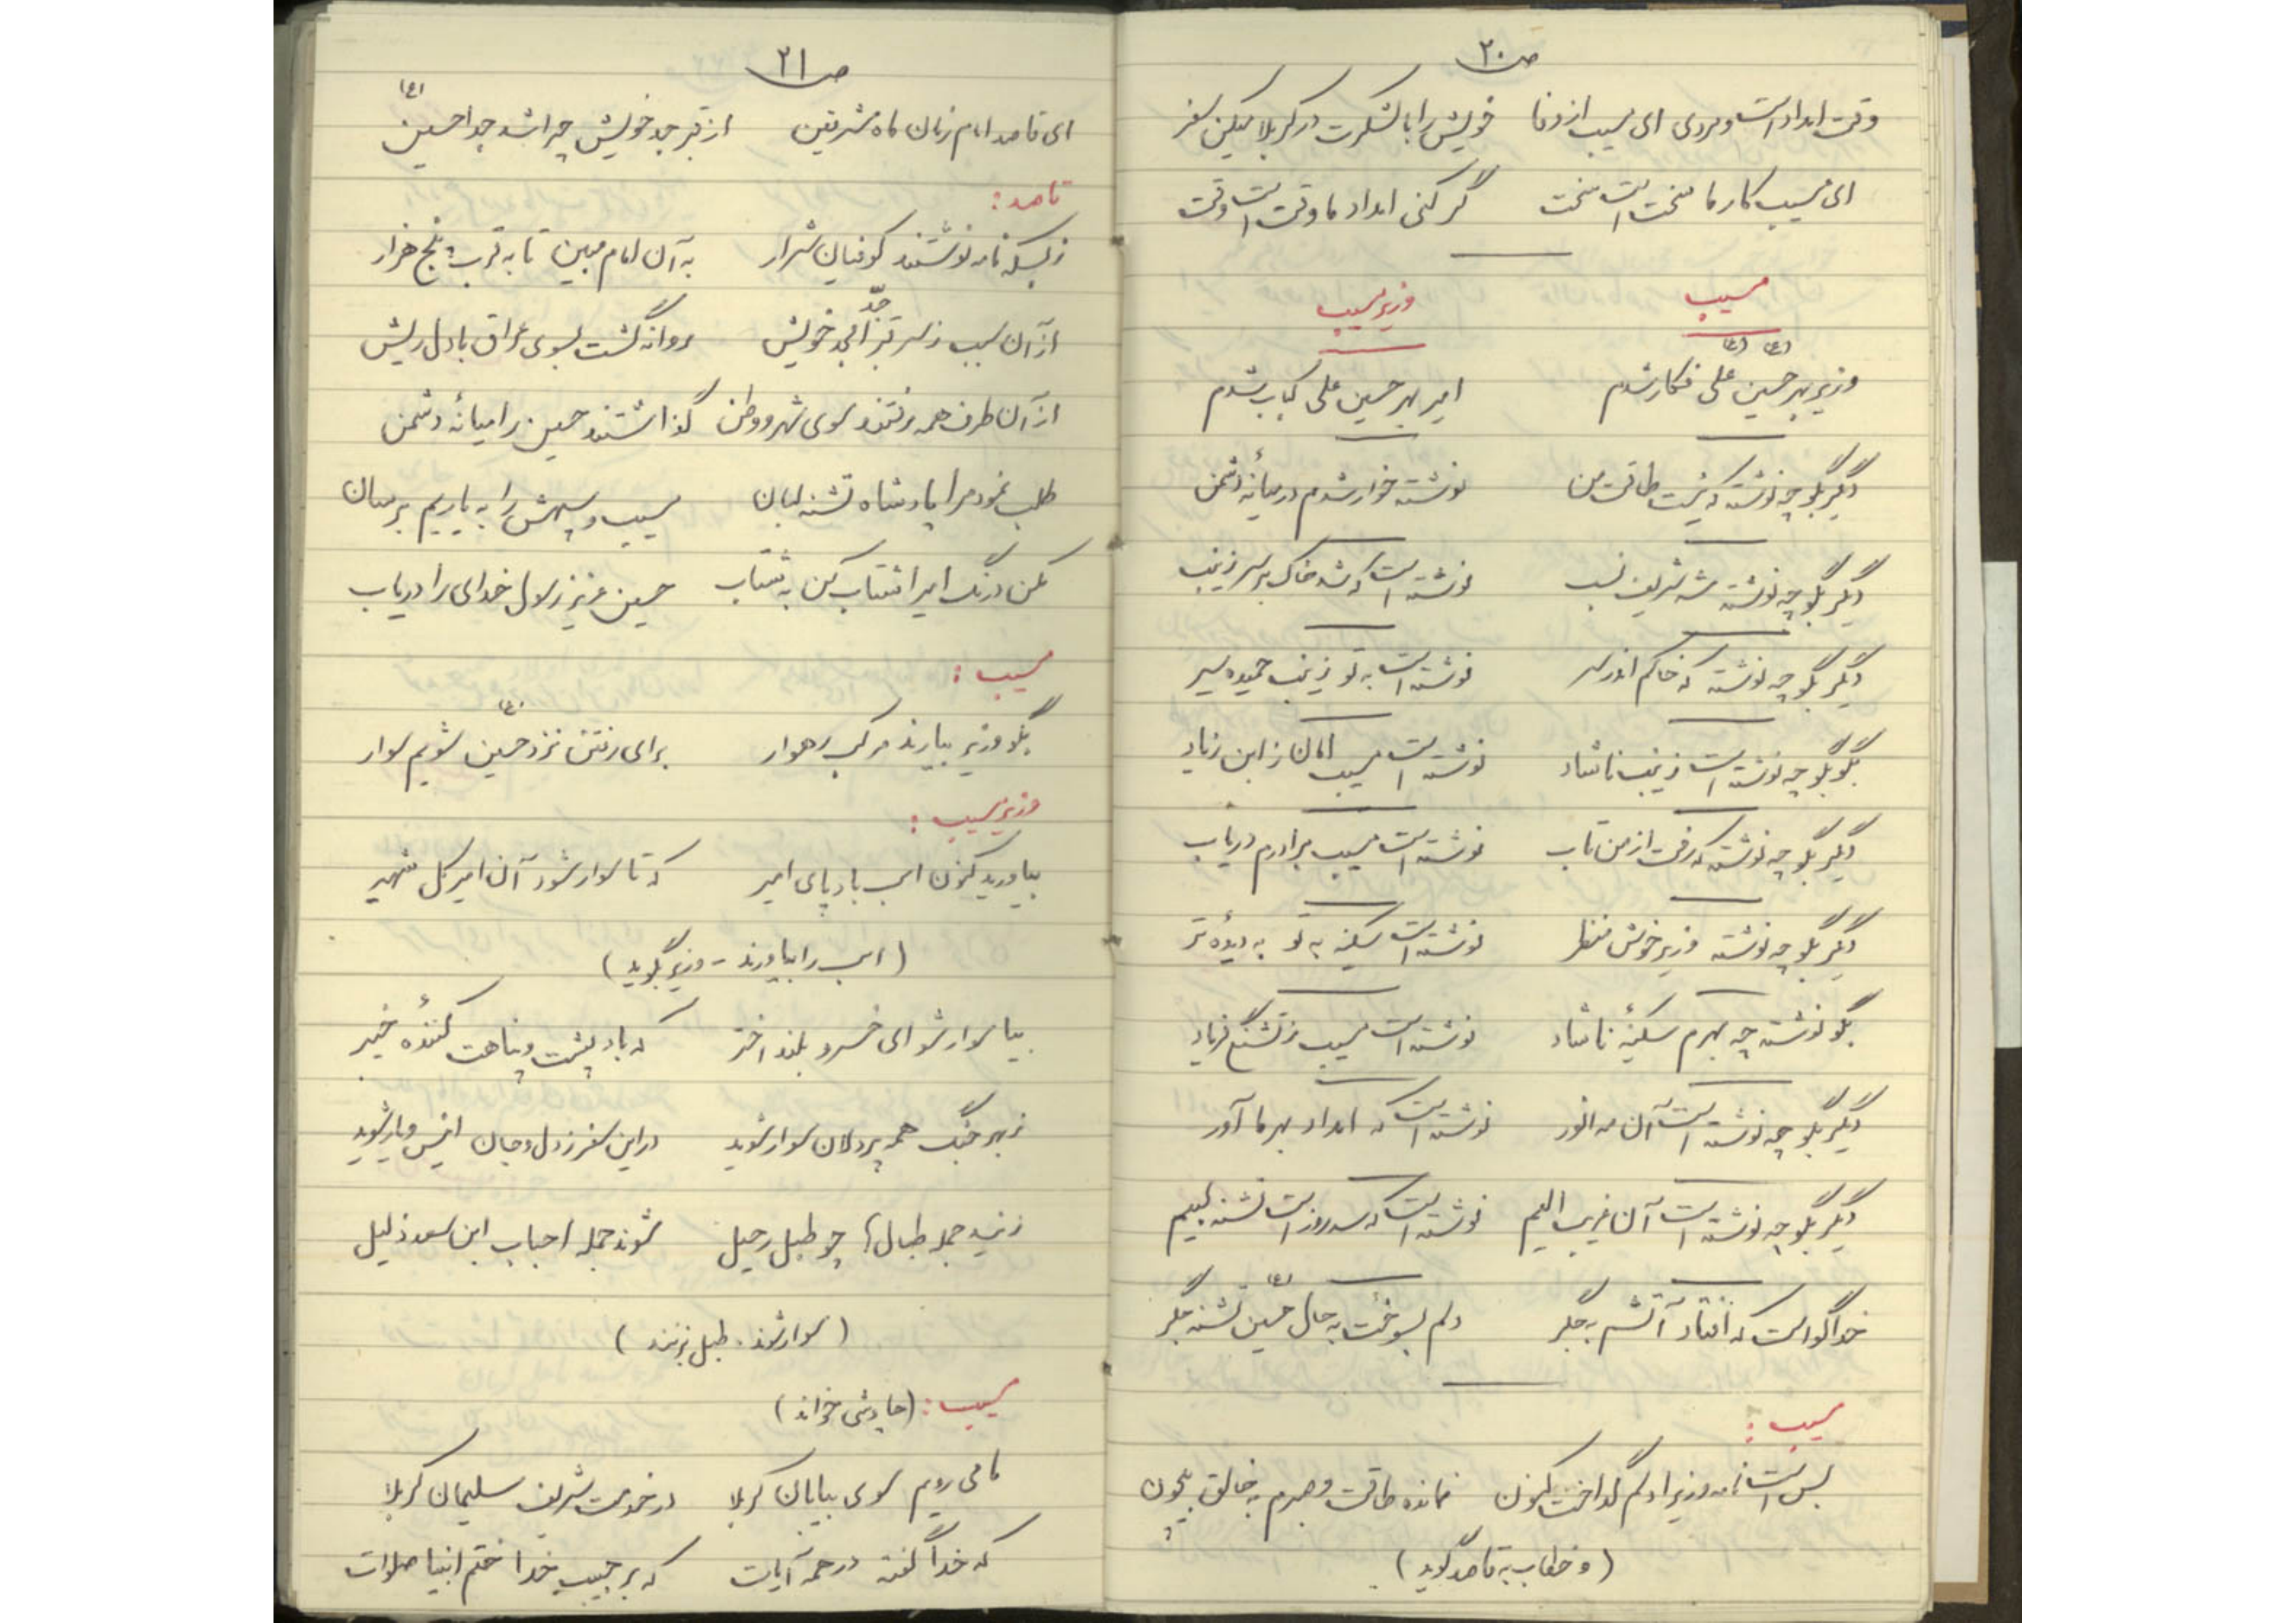 ص ۲۰
وقت امداد است و مردی ای مسیب از وفا    خویش را با لشکرت در کربلا میکن سفر
ای مسیب کار ما سخت است سخت    گر کنی امداد ما وقت است وقت
مسیب    وزیر مسیب
وزیر بهر حسین (ع) علی (ع) فکار شدم    امیر بهر حسین علی کباب شدم
دگر بگو چه نوشته که نیست طاقت من    نوشته خوار شدم در میانهٔ دشمن
دگر بگو چه نوشته شه شریف نسب    نوشته است که شد خاک بر سر زینب
دگر بگو چه نوشته که خاکم اندر سر    نوشته است به تو زینب حمیده سیر
بگو بگو چه نوشته است زینب ناشاد    نوشته است مسیب امان ز ابن زیاد
دگر بگو چه نوشته که رفت از من تاب    نوشته است مسیب برادرم دریاب
دگر بگو چه نوشته وزیر خوش منظر    نوشته است سکینه به تو به دیدهٔ تر
بگو نوشته چه بهرم سکینهٔ ناشاد    نوشته است مسیب ز تشنگی فریاد
دگر بگو چه نوشته است آن مه انور    نوشته است که امداد بهر ما آور
دگر بگو چه نوشته است آن غریب الیم    نوشته است که سه روز است تشنه لبیم
خدا گواست که افتاد آتشم به جگر    دلم بسوخت به حال حسین (ع) تشنه جگر
مسیب :
بس است نامه وزیرا دلم گداخت کنون    نمانده طاقت و صبرم به خالق بیچون
(و خطاب به قاصد گوید)
ص ۲۱
ای قاصد امام زمان ماه مشرقین    از قبر جد خویش چرا شد جدا حسین (ع)
قاصد :
ز بسکه نامه نوشتند کوفیان شرار    به آن امام مبین تا به قرب پنج هزار
از آن سبب ز سر قبر جدّ امجد خویش    روانه گشت بسوی عراق با دل ریش
از آن طرف همه رفتند سوی شهر و وطن    گذاشتند حسین را میانهٔ دشمن
طلب نمود مرا پادشاه تشنه لبان    مسیب و سپهش را به یاریم برسان
مکن درنگ امیرا شتاب کن به شتاب    حسین عزیز رسول خدای را دریاب
مسیب :
بگو وزیر بیارند مرکب رهوار    برای رفتن نزد حسین (ع) شویم سوار
وزیر مسیب :
بیاورید کنون اسب باد پای امیر    که تا سوار شود آن امیر کل شهیر
(اسب را بیاورند - وزیر گوید)
بیا سوار شو ای خسرو بلند اختر    که باد پشت و پناهت کنندهٔ خیبر
ز بهر جنگ همه پر دلان سوار شوید    در این سفر ز دل و جان انیس و یار شوید
زنید جمله طبال‌ها چو طبل رحیل    شوند جمله احباب ابن سعد ذلیل
(سوار شوند . طبل بزنند)
مسیب : (چاوشی خواند)
ما می رویم سوی بیابان کربلا    در خدمت شریف سلیمان کربلا
که خدا گفته در همه آیات    که بر حبیب خدا ختم انبیا صلوات